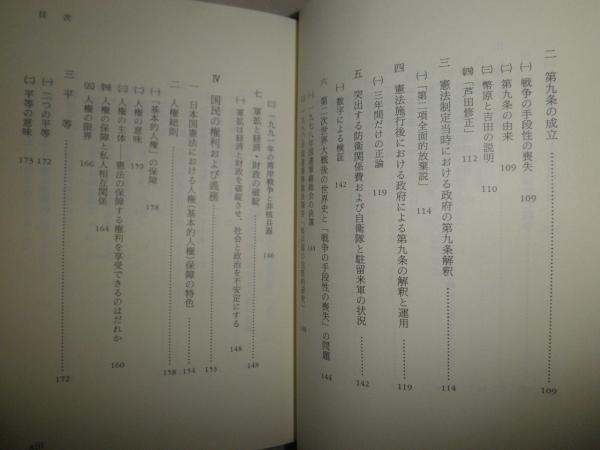 二　第九条の成立……109
㈠　戦争の手段性の喪失　109
㈡　第九条の由来　109
㈢　幣原と吉田の説明　110
㈣　「芦田修正」　112
三　憲法制定当時における政府の第九条解釈……114
㈠　「第二項全面的放棄説」　114
四　憲法施行後における政府による第九条の解釈と運用……119
㈠　三年間だけの正論　119
五　突出する防衛関係費および自衛隊と駐留米軍の状況……142
㈠　数字による検証　142
六　第二次世界大戦後の世界史と「戦争の手段性の喪失」の問題……144
㈠　一九七八年国連軍縮総会の決議　144
目次
㈢　一九九一年の湾岸戦争と非核兵器　146
七　軍拡と経済・財政の破綻……148
㈠　軍拡は経済と財政を破綻させ、社会と政治を不安定にする　148
Ⅳ　国民の権利および義務……153
一　日本国憲法における人権（基本的人権）保障の特色……154
二　人権総則……158
㈠　「基本的人権」の保障　158
㈡　人権の意味　159
㈢　人権の主体　憲法の保障する権利を享受できるのはだれか　160
㈣　人権の保障と私人相互関係　164
㈤　人権の限界　166
三　平等……172
㈠　二つの平等　172
㈡　平等の意味　173
xiii